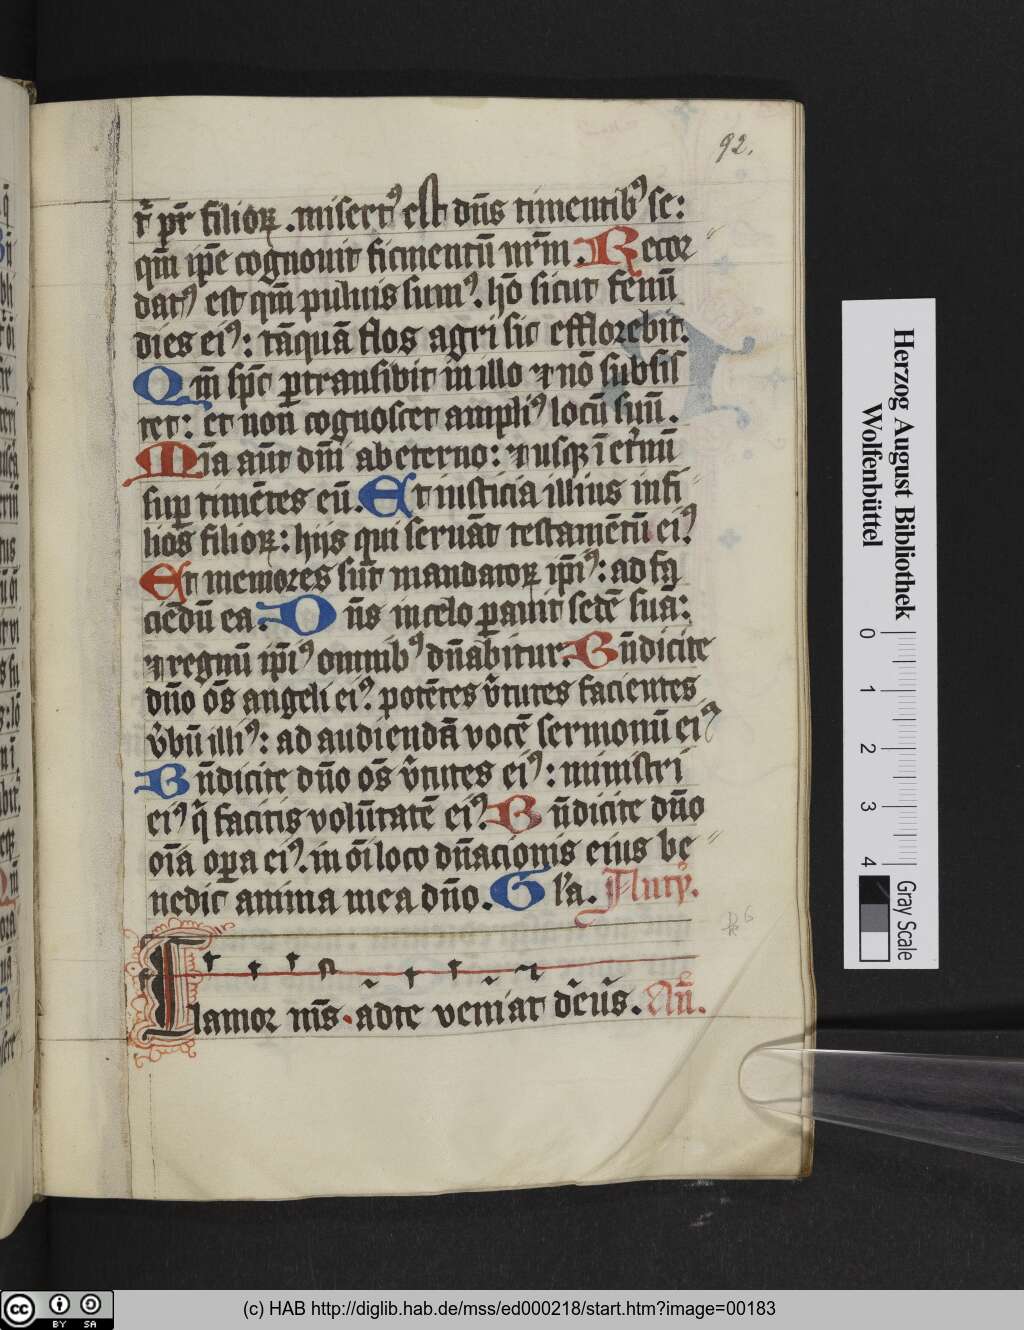 92.
t̄ pr̄ filioꝝ . misertꝰ est dn̄s timentibꝰ se:
qm̄ ip̄e cognouit figmentū nr̄m . Recor
datꝰ est qm̄ puluis sumꝰ. hō sicut fenū
dies eiꝰ: tāquā flos agri sic efflorebit.
Qm̄ sp̄c ꝑtransibit in illo ⁊ nō subsis
tet: et non cognoscet ampliꝰ locū suū.
Mīa aūt dn̄i ab eterno: ⁊ usqꝫ ī et̄nū
suꝑ timētes eū. Et iusticia illius in fi
lios filioꝝ: hijs qui seruāt testamētū eiꝰ
Et memores sūt mandatoꝝ ip̄iꝰ: ad fa
ciēdū ea. Dn̄s in celo ꝑauit sedē suā:
⁊ regnū ip̄iꝰ omnibꝰ dn̄abitur. Bn̄dicite
dn̄o oēs angeli eiꝰ. potētes v̄tutes facientes
v̄bū illiꝰ: ad audiendā vocē sermonū eiꝰ
Bn̄dicite dn̄o oēs v̄tutes eiꝰ: ministri
eiꝰ q̄ facitis volūtatē eiꝰ. Bn̄dicite dn̄o
oīa oꝑa eiꝰ. in oī loco dn̄acionis eius be
nedic̄ anima mea dn̄o. Gl'a.
lamor m̄s. ad te veniat deus. An̄.
Herzog August Bibliothek
Wolfenbüttel
0 1 2 3 4
Gray Scale
cc BY SA
(c) HAB http://diglib.hab.de/mss/ed000218/start.htm?image=00183